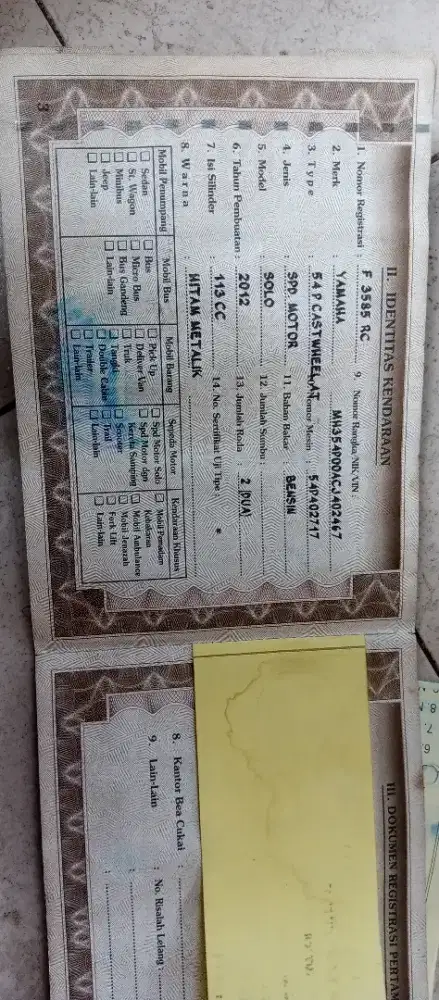 II. IDENTITAS KENDARAAN
1. Nomor Registrasi : F 3585 RC 9. Nomor Rangka/NIK/VIN :
2. Merk : YAMAHA MH354P00ACJ402467
3. Type : 54 P CASTWHEEL AT Nomor Mesin : 54P402717
4. Jenis : SPD. MOTOR 11. Bahan Bakar : BENSIN
5. Model : SOLO 12. Jumlah Sumbu :
6. Tahun Pembuatan : 2012 13. Jumlah Roda : 2 (DUA)
7. Isi Silinder : 113 CC 14. No. Sertifikat Uji Tipe : *
8. Warna : HITAM METALIK
Mobil Penumpang Mobil Bus Mobil Barang Sepeda Motor Kendaraan Khusus
Sedan Bus Pick Up Spd Motor Solo Mobil Pemadam
St. Wagon Micro Bus Deliver Van Spd Motor dgn Kebakaran
Minibus Bus Gandeng Truk Kereta Samping Mobil Ambulance
Jeep Lain-lain Tangki Scooter Mobil Jenazah
Lain-lain Double Cabin Trail Fork Lift
Trailer Lain-lain Lain-lain
Lain-lain
3
III. DOKUMEN REGISTRASI
8. Kantor Bea Cukai :
9. Lain-Lain : No. Risalah Lelang :
6.
7.
8.